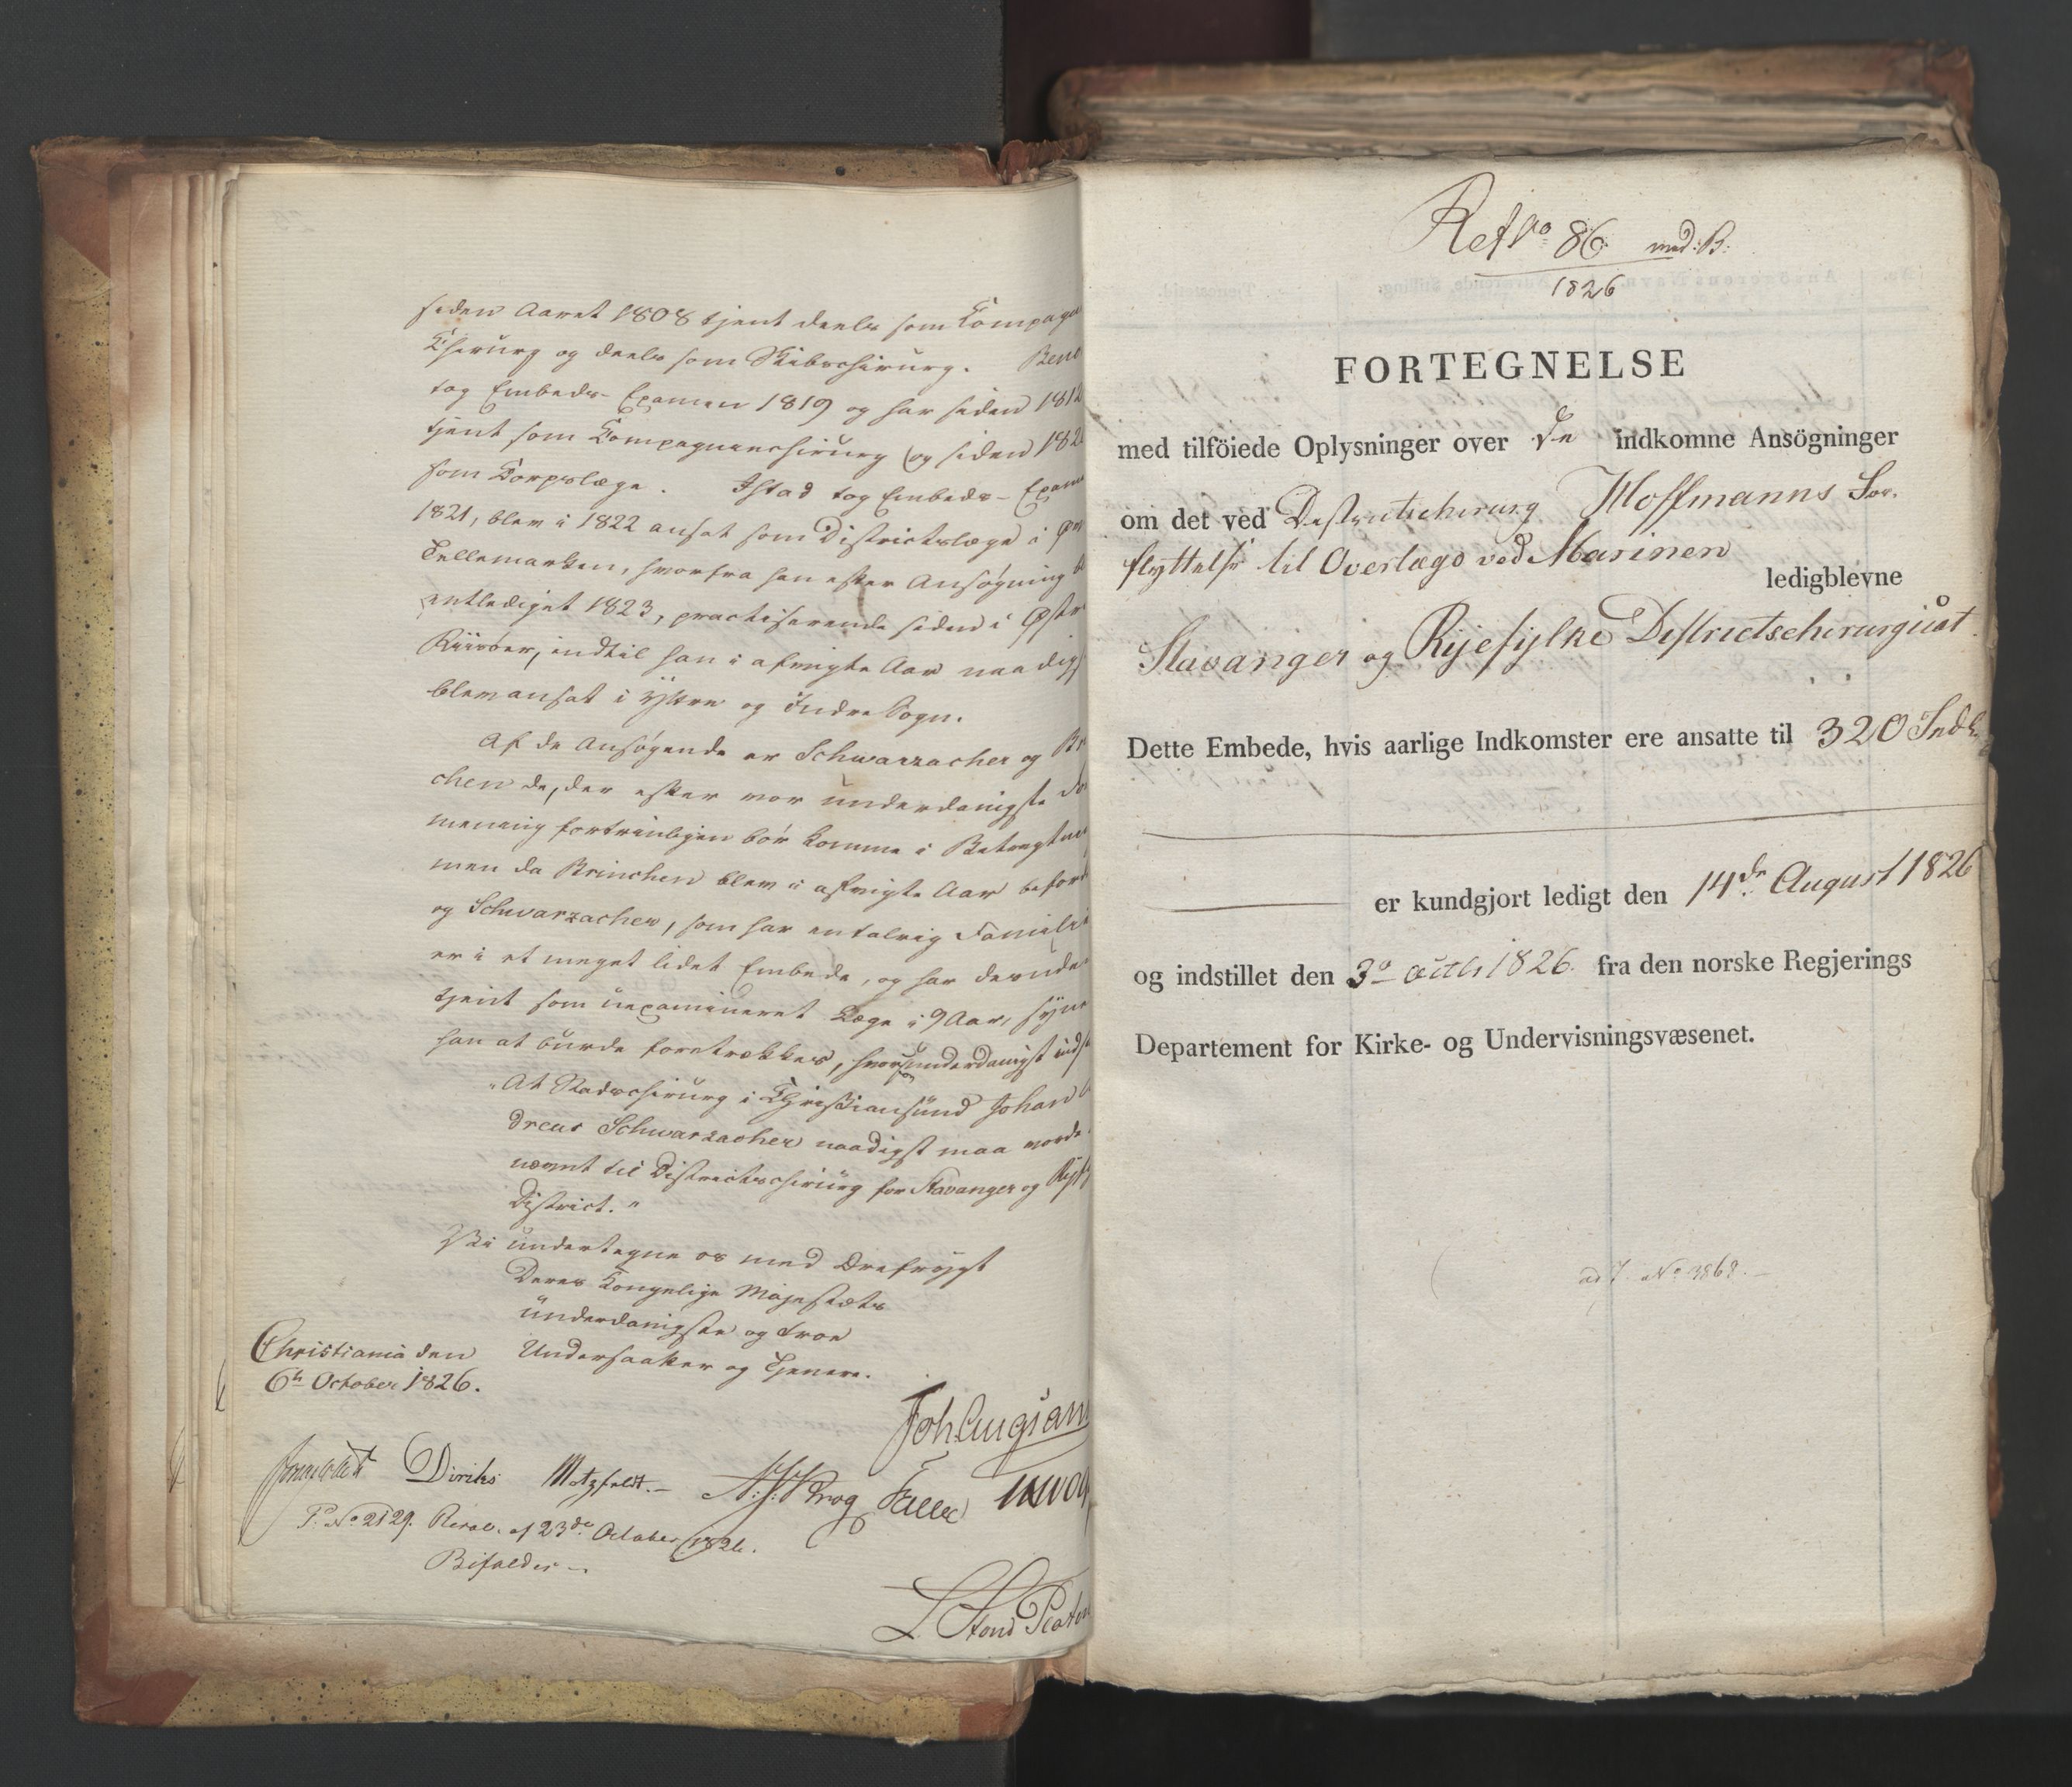 siden Aaret 1808 tjent deels som Compagn
Chirurg og deels som Skibschirurg. Ben
tog Embeds-Examen 1819 og har siden 1812
tjent som Compagniechirurg og siden 182
som Corpslæge. Istad tog Embeds-Exam
1821, blev i 1822 ansat som Districtslæge i
Tellemarken, hvorfra han efter Ansøgning b
entlediget 1823, practiserende siden i Østr
Riisøer, indtil han i afvigte Aar naadigs
blev ansat i Yttre og Indre Sogn.
Af de Ansøgende er Schwarzacher og Br
chen de, der efter vor underdanigste For
mening fortrinligen bør komme i Betragtn
men da Brinchen blev i afvigte Aar beford
og Schwarzacher, som har en talrig Famili
er i et meget lidet Embede, og har desude
tjent som uexamineret Læge i 9 Aar, syne
han at burde foretrækkes, hvorfor underdanigst inds
"At Stadschirurg i Christiansund Johan
dreas Schwarzacher naadigst maa vorde
nævnt til Districtschirurg for Stavanger og Ryef
District."
Vi undertegne os med Ærefrygt
Deres Kongelige Majestæts
underdanigste og troe
Undersaatter og Tjenere.
Christiania den
6te October 1826.
Diriks Motzfeldt.
P. No 2129. Resol. af 23de October 1826.
Bifaldes
Ref No 86 med: B:
1826
FORTEGNELSE
med tilföiede Oplysninger over de indkomne Ansögninger
om det ved Destrictschirurg Hoffmanns For-
flyttelse til Overlæge ved Marinen
ledigblevne
Stavanger og Ryefylke Districtschirurgicat
Dette Embede, hvis aarlige Indkomster ere ansatte til 320 Indb.
er kundgjort ledigt den 14de August 1826
og indstillet den 3o octb 1826. fra den norske Regjerings
Departement for Kirke- og Undervisningsvæsenet.